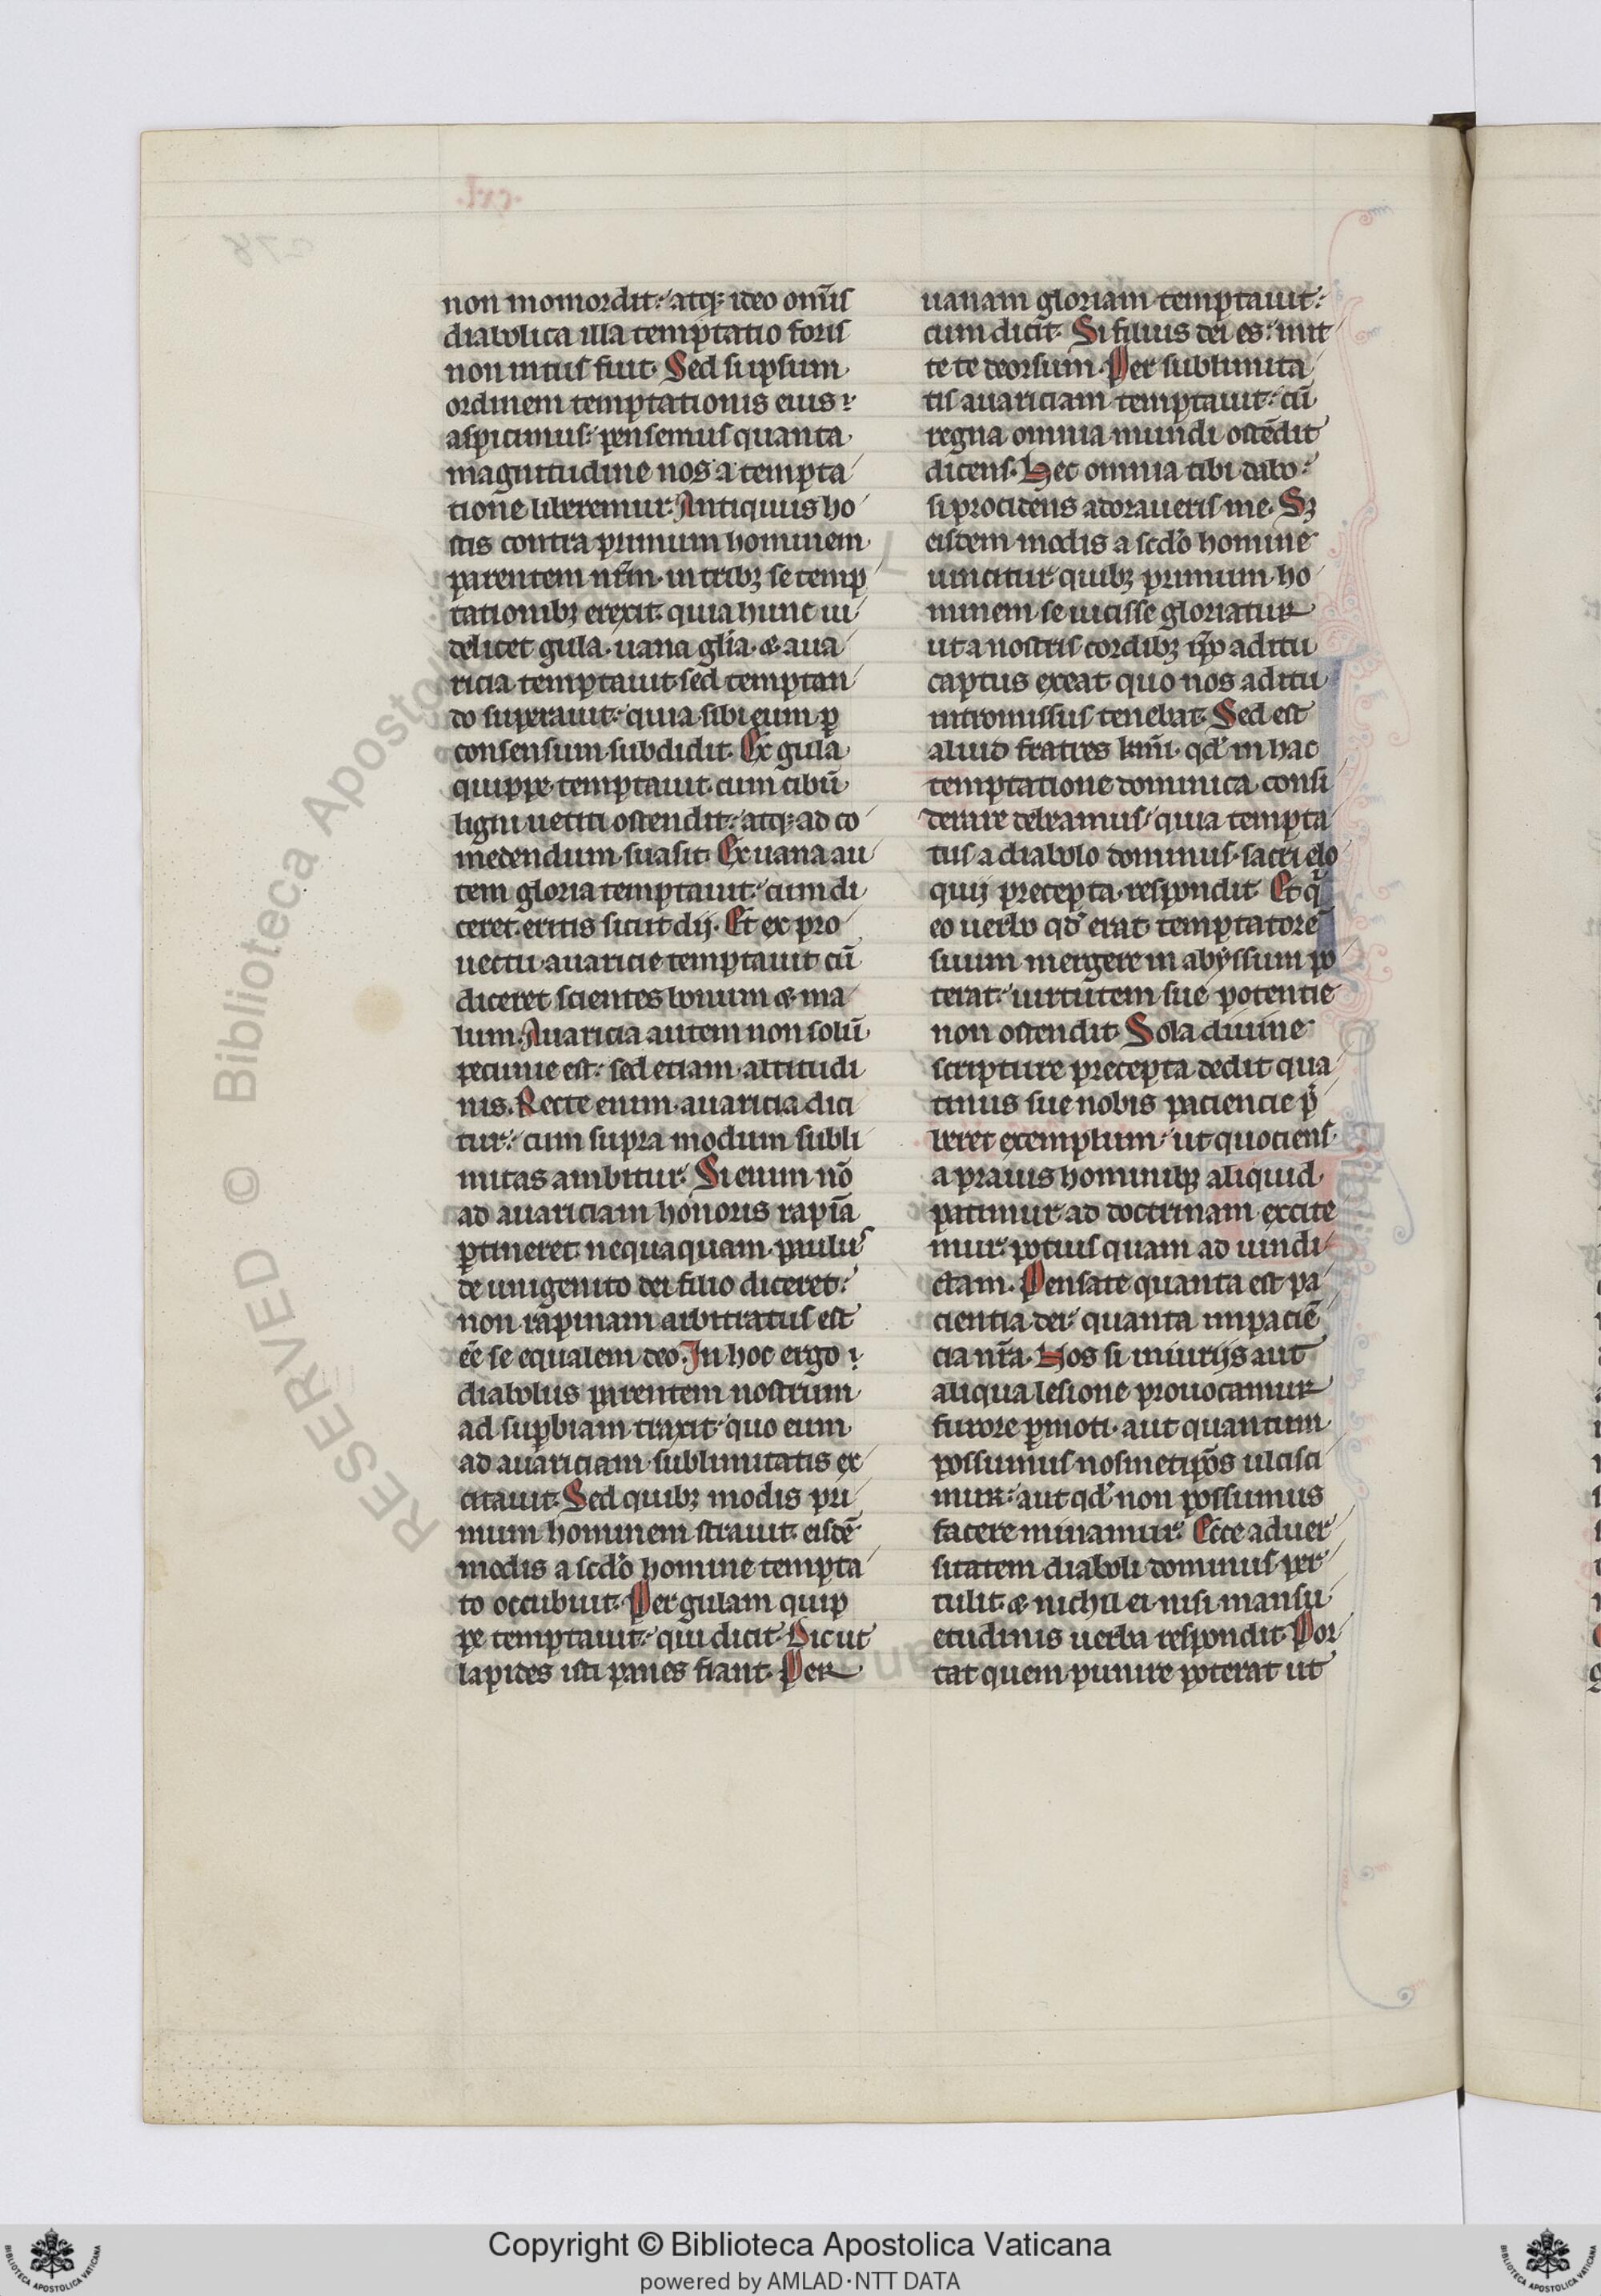 non momordit: atqꝫ ideo om̅is
diabolica illa temptatio foris
non intus fuit. Sed si ipsum
ordinem temptationis eius
aspicimus: pensemus quanta
magnitudine nos a tempta
tione liberemur. Antiquus ho
stis contra primum hominem
parentem nr̅m. in tribꝫ se temp
tationibꝫ erexit. quia hunc ui
delicet gula. uana gl̅ia. ⁊ aua
ricia temptauit. sed temptan
do superauit: quia sibi eum ꝑ
consensum subdidit. Ex gula
quippe temptauit. cum cibu̅
ligni uetiti ostendit: atqꝫ ad co
medendum suasit. Ex uana au
tem gloria temptauit: cum di
ceret. eritis sicut dij. Et ex pro
uectu auaricie temptauit cu̅
diceret scientes bonum ⁊ ma
lum. Auaricia autem non solu̅
pecunie est: sed etiam altitudi
nis. Recte enim auaricia dici
tur: cum supra modum subli
mitas ambitur. Si enim no̅
ad auariciam honoris rapi̅a
ꝑtineret. nequaquam paulus
de unigenito dei filio diceret:
non rapinam arbitratus est
ee̅ se equalem deo. In hoc ergo
diabolus parentem nostrum
ad suꝑbiam traxit. quo eum
ad auariciam sublimitatis ex
citauit. Sed quibꝫ modis pri
mum hominem strauit. eisde̅
modis a scd̅o homine tempta
to occubuit. Per gulam quip
pe temptauit: qui dicit. Dic ut
lapides isti panes fiant. Per
uanam gloriam temptauit:
cum dicit. Si filius dei es: mit
te te deorsum. Per sublimita
tis auariciam temptauit: cu̅
regna omnia mundi oste̅dit
dicens. Hec omnia tibi dabo:
si procidens adoraueris me. Sꝫ
eisdem modis a scd̅o homine
uincitur quibꝫ primum ho
minem se uicisse gloriatur
ut a nostris cordibꝫ ip̅o aditu
captus exeat quo nos aditu
intromissus tenebat. Sed est
aliud fratres km̅i. qd̅ in hac
temptatione dominica consi
derare debeamus. quia tempta
tus a diabolo dominus. sacri elo
quij precepta respondit. Et q̅
eo uerbo qd̅ erat temptatore̅
suum mergere in abyssum po
terat: uirtutem sue potentie
non ostendit. Sola diuine
scripture precepta dedit qua
tinus sue nobis paciencie p̅
beret exemplum: ut quociens
a prauis hominibꝫ aliquid
patimur ad doctrinam excite
mur: potius quam ad uindi
ctam. Pensate quanta est pa
cientia dei: quanta impacie̅
cia nr̅a. Nos si iniurijs aut
aliqua lesione prouocamur
furore ꝑmoti. aut quantum
possumus nosmetip̅os ulcisci
mur: aut qd̅ non possumus
facere minamur. Ecce aduer
sitatem diaboli dominus per
tulit. ⁊ nichil ei nisi mansu
etudinis uerba respondit. Por
tat quem punire poterat ut
RESERVED © Biblioteca Aposto
Copyright © Biblioteca Apostolica Vaticana
powered by AMLAD·NTT DATA